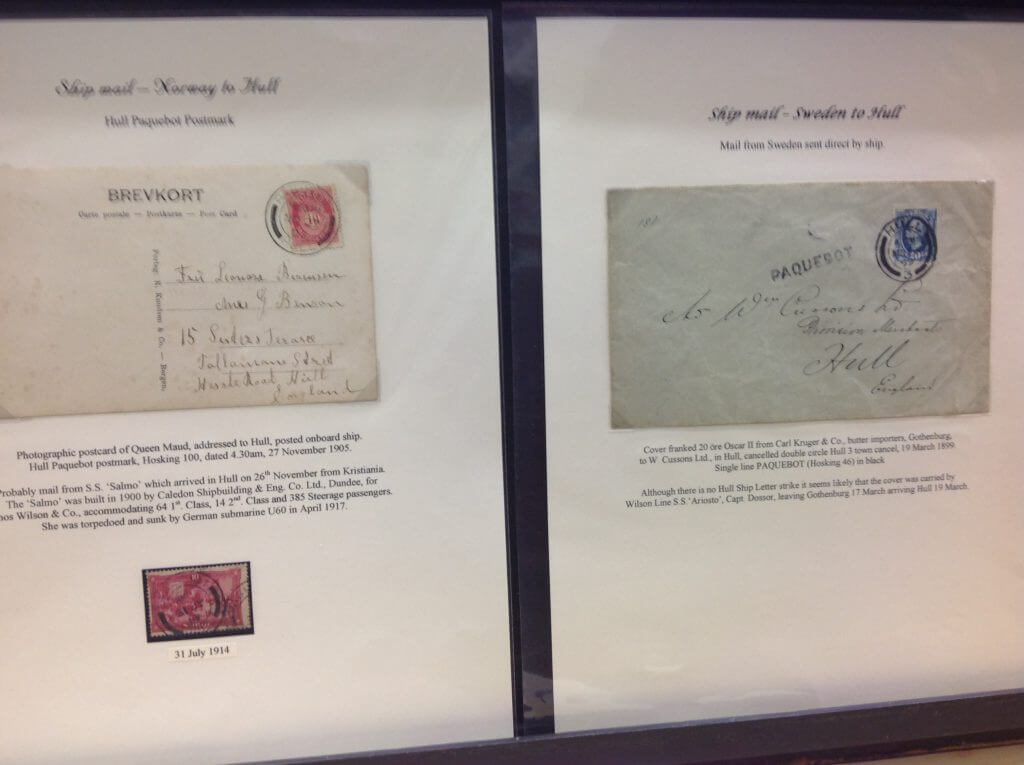 Ship mail – Norway to Hull
Hull Paquebot Postmark
BREVKORT
Carte postale – Postkarte – Post Card
10
Forlag: K. Knudsen & Co. – Bergen.
15
England
Photographic postcard of Queen Maud, addressed to Hull, posted onboard ship.
Hull Paquebot postmark, Hosking 100, dated 4.30am, 27 November 1905.
Probably mail from S.S. 'Salmo' which arrived in Hull on 26th November from Kristiania.
The 'Salmo' was built in 1900 by Caledon Shipbuilding & Eng. Co. Ltd., Dundee, for
Wilson & Co., accommodating 64 1st. Class, 14 2nd. Class and 385 Steerage passengers.
She was torpedoed and sunk by German submarine U60 in April 1917.
10
31 July 1914
Ship mail – Sweden to Hull
Mail from Sweden sent direct by ship.
PAQUEBOT
HULL
3
Wm Cussons Ld
Provision Merchant
Hull
England
Cover franked 20 öre Oscar II from Carl Kruger & Co., butter importers, Gothenburg,
to W Cussons Ltd., in Hull, cancelled double circle Hull 3 town cancel, 19 March 1899.
Single line PAQUEBOT (Hosking 46) in black
Although there is no Hull Ship Letter strike it seems likely that the cover was carried by
Wilson Line S.S.'Ariosto', Capt. Dossor, leaving Gothenburg 17 March arriving Hull 19 March.